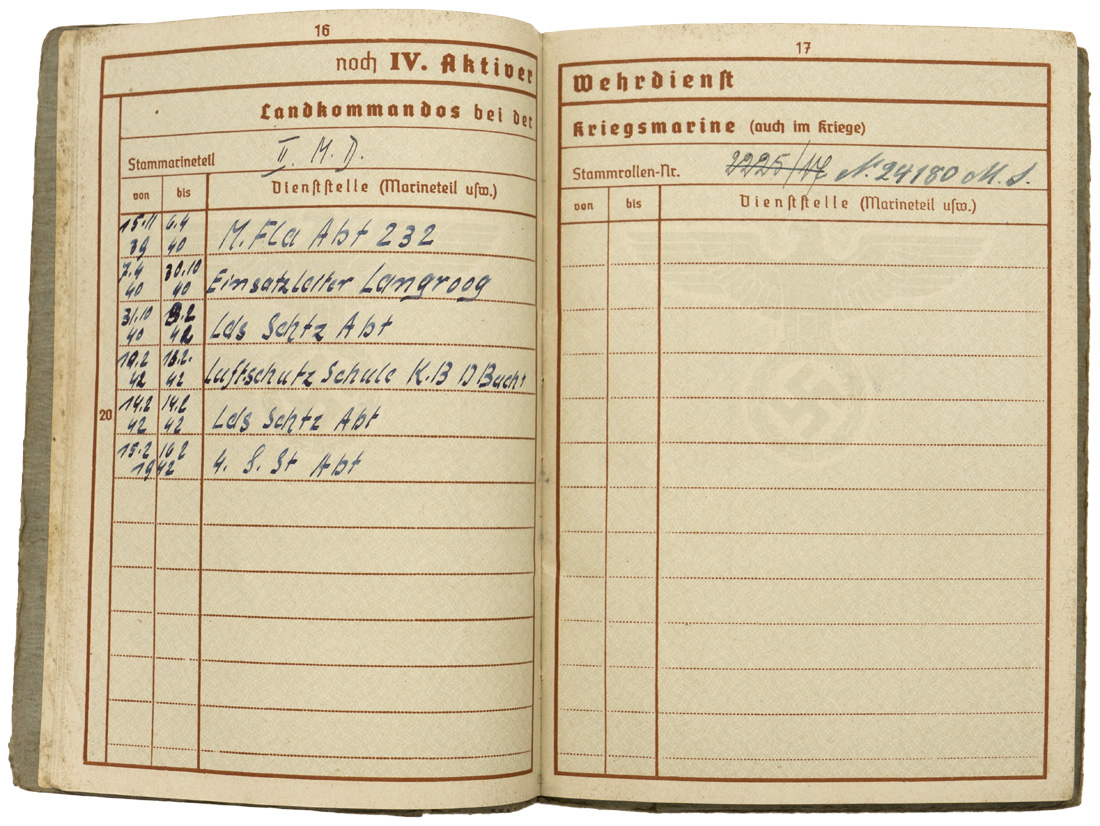 16
noch IV. Aktiver
Landkommandos bei der
Stammarineteil II. M. D.
von bis Dienststelle (Marineteil usw.)
15.11 39 6.4 40 M. Fla Abt 232
7.4 40 30.10 40 Einsatzleiter Langroog
31.10 40 42 Lds Schtz Abt
42 13.2. 42 Luftschutz Schule K.B D Bucht
20
14.2 42 14.2 42 Lds Schtz Abt
15.2 16.2 1942 4. S. St Abt
17
Wehrdienst
Kriegsmarine (auch im Kriege)
Stammrollen-Nr. 2225/17 N. 24180 M. S.
von bis Dienststelle (Marineteil usw.)